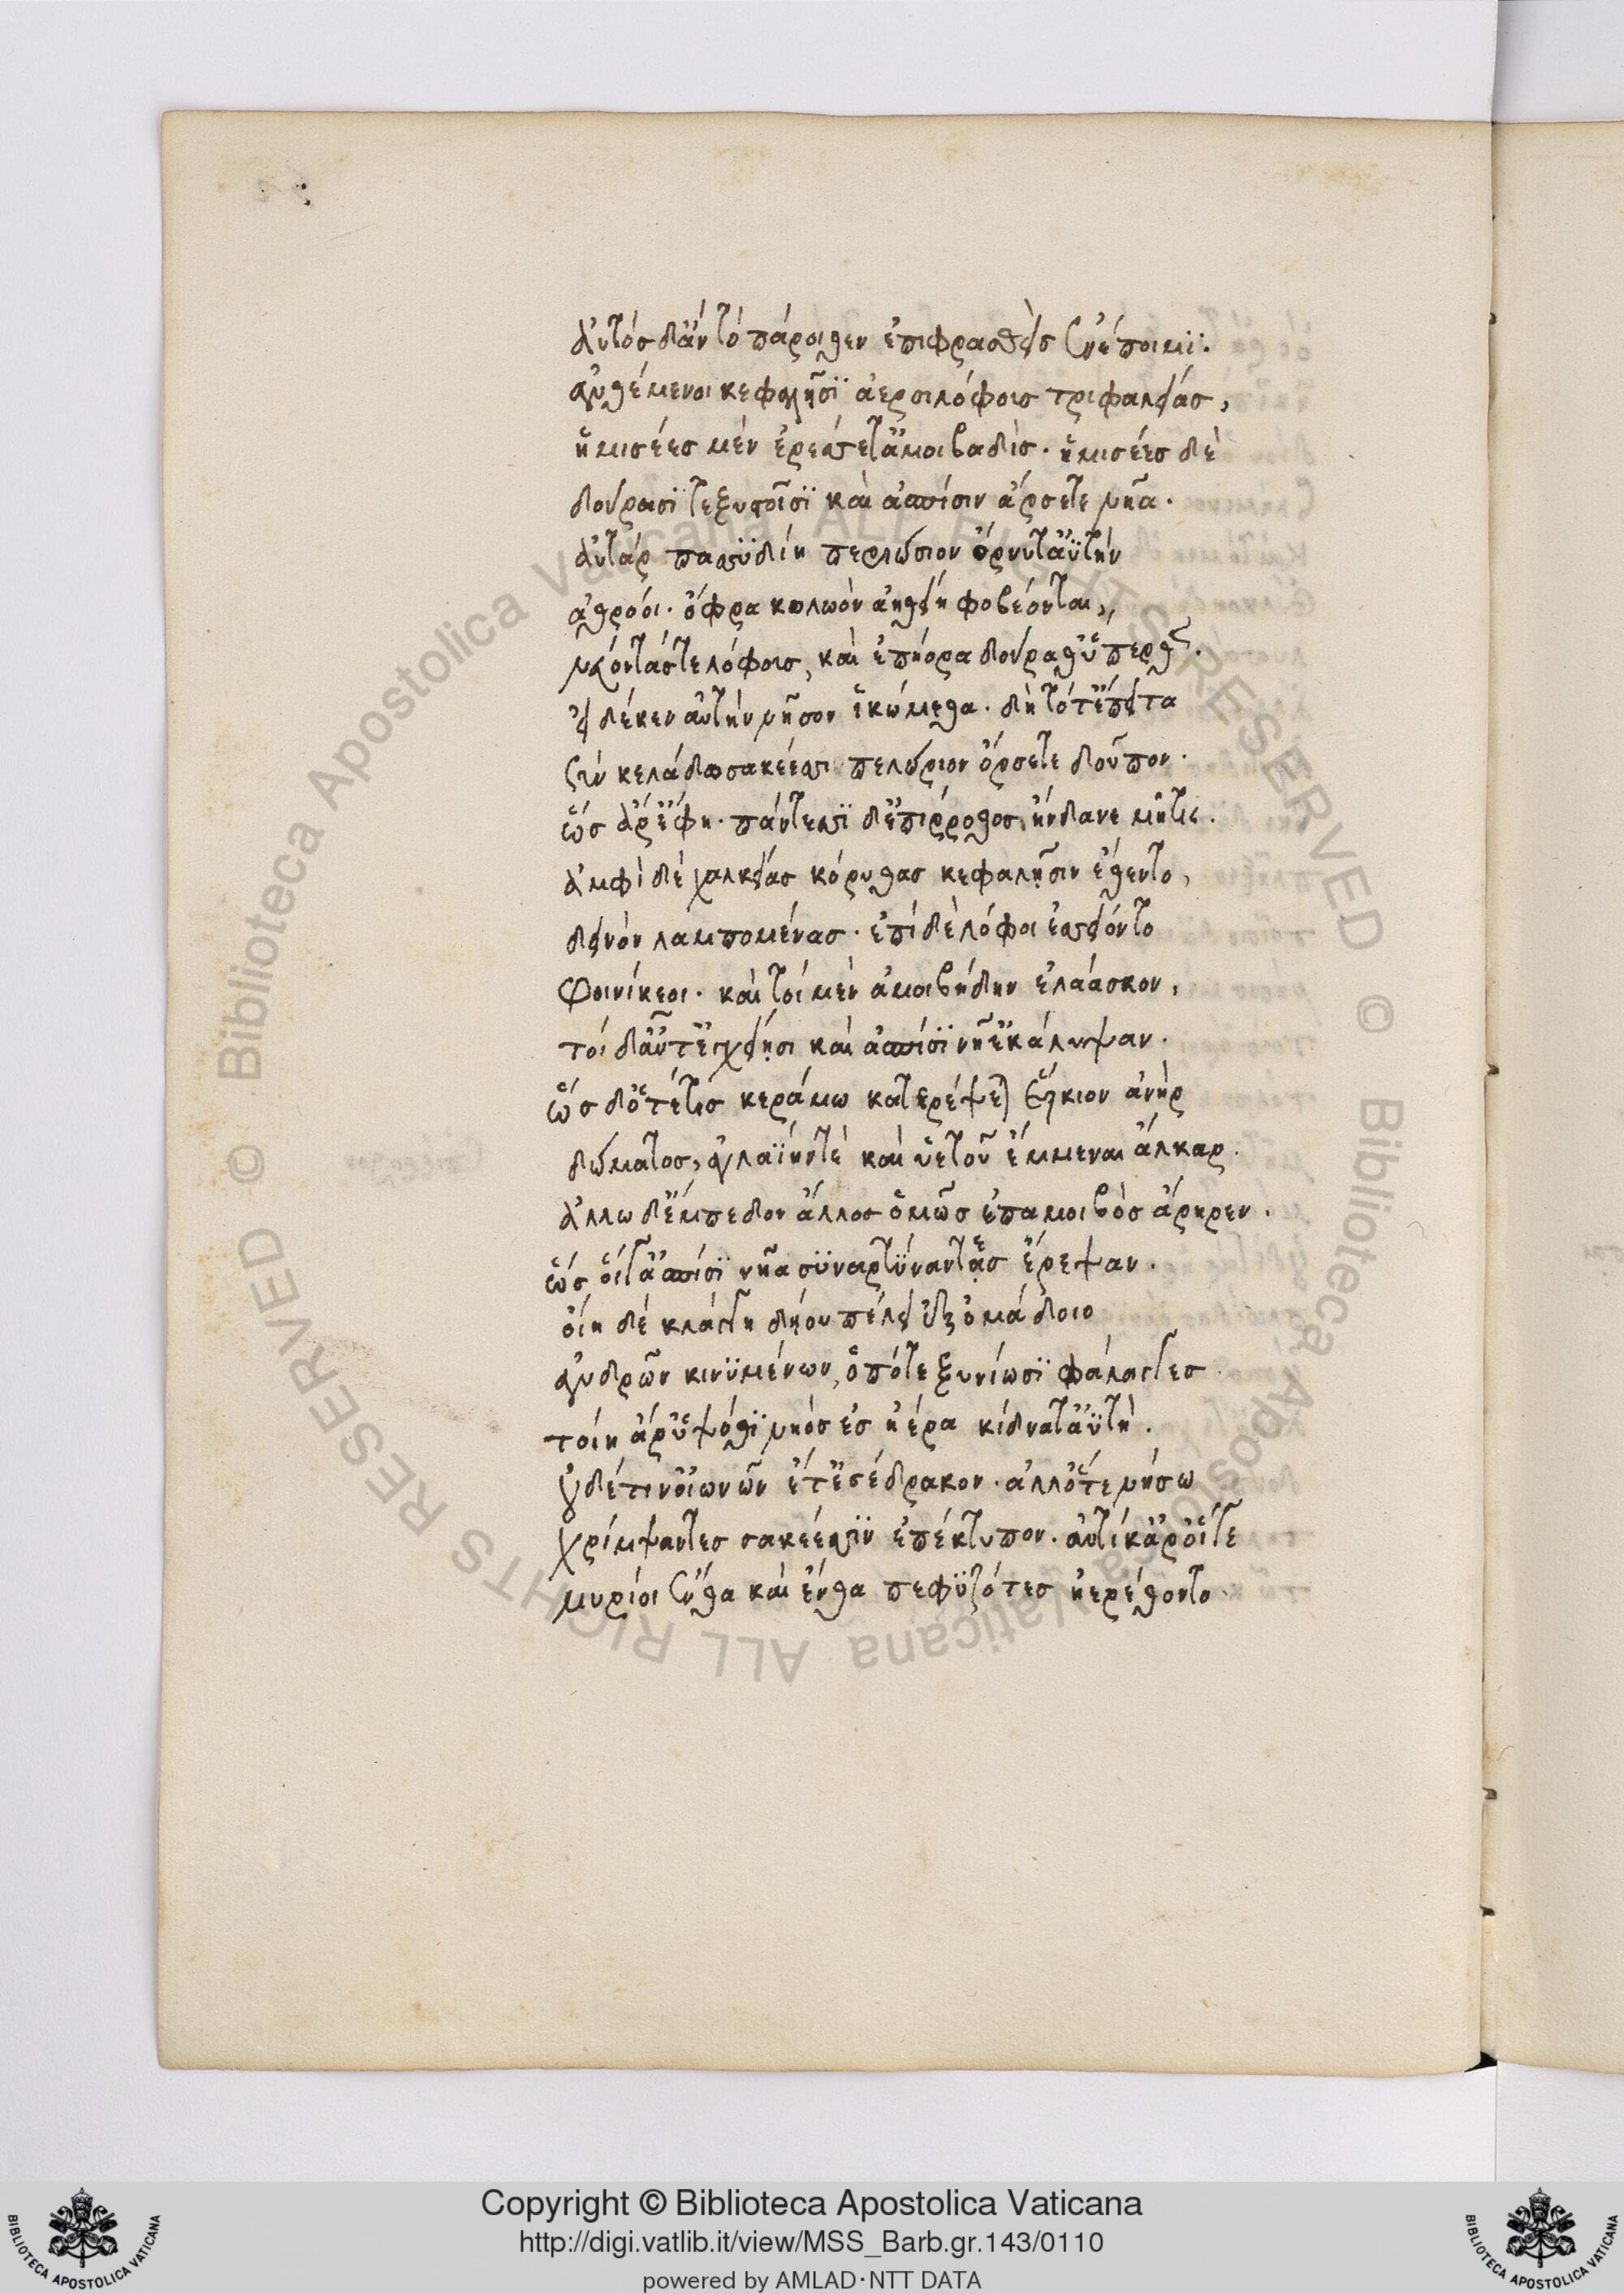 Αὐτὸς δ' ἂν τὸ πάροιθεν ἐπιφρασθεὶς ἐνέποιμι.
ἀνθέμενοι κεφαλῇσι ἀερσιλόφοις τρυφαλείας,
ἡμισέες μὲν ἐρέσσετ' ἀμοιβαδὶς. ἡμισέες δὲ
δούρασί τε ξυστοῖσι καὶ ἀσπίσιν ἄρσετε νῆα.
Αὐτὰρ πασσυδίῃ περιώσιον ὄρνυτ' ἀϋτὴν
ἀθρόοι. ὄφρα κολωὸν ἀηθείῃ φοβέονται,
νεύοντάς τε λόφους, καὶ ἐπήορα δούραθ' ὕπερθεν.
εἰ δέ κεν αὐτὴν νῆσον ἱκώμεθα. δὴ τότ' ἔπειτα
σὺν κελάδῳ σακέεσσι πελώριον ὄρσετε δοῦπον.
ὣς ἄρ' ἔφη. πάντεσσι δ' ἐπίρροθος ἥνδανε μῆτις.
Ἀμφὶ δὲ χαλκείας κόρυθας κεφαλῇσιν ἔθεντο,
δεινὸν λαμπομένας. ἐπὶ δὲ λόφοι ἐσσείοντο
Φοινίκεοι. καὶ τοὶ μὲν ἀμοιβήδην ἐλάασκον,
τοὶ δ' αὖτ' ἐγχείῃσι καὶ ἀσπίσι νῆ' ἐκάλυψαν.
ὡς δ' ὅτε τις κεράμῳ κατερέψεται ἑρκίον ἀνὴρ
δώματος, ἀγλαΐην τὲ καὶ ὑετοῦ ἔμμεναι ἄλκαρ.
Ἄλλῳ δ' ἔμπεδον ἄλλος ὁμῶς ἐπαμοιβὸς ἄρηρεν.
ὣς οἵ γ' ἀσπίσι νῆα συναρτύναντες ἔρεψαν.
οἵη δὲ κλαγγὴ δηΐου πέλει ἐξ ὁμάδοιο
ἀνδρῶν κινυμένων, ὁπότε ξυνίωσι φάλαγγες
τοίη ἄρ' ὑψόθι νηὸς ἐς ἠέρα κίδνατ' ἀϋτή.
οὐδέ τιν' οἰωνῶν ἔτ' ἐσέδρακον. ἀλλ' ὅτε νήσῳ
χρίμψαντες σακέεσσιν ἐπέκτυπον. αὐτίκ' ἄρ' οἵ γε
μυρίοι ἔνθα καὶ ἔνθα πεφυζότες ἠερέθοντο.
Copyright © Biblioteca Apostolica Vaticana
http://digi.vatlib.it/view/MSS_Barb.gr.143/0110
powered by AMLAD·NTT DATA